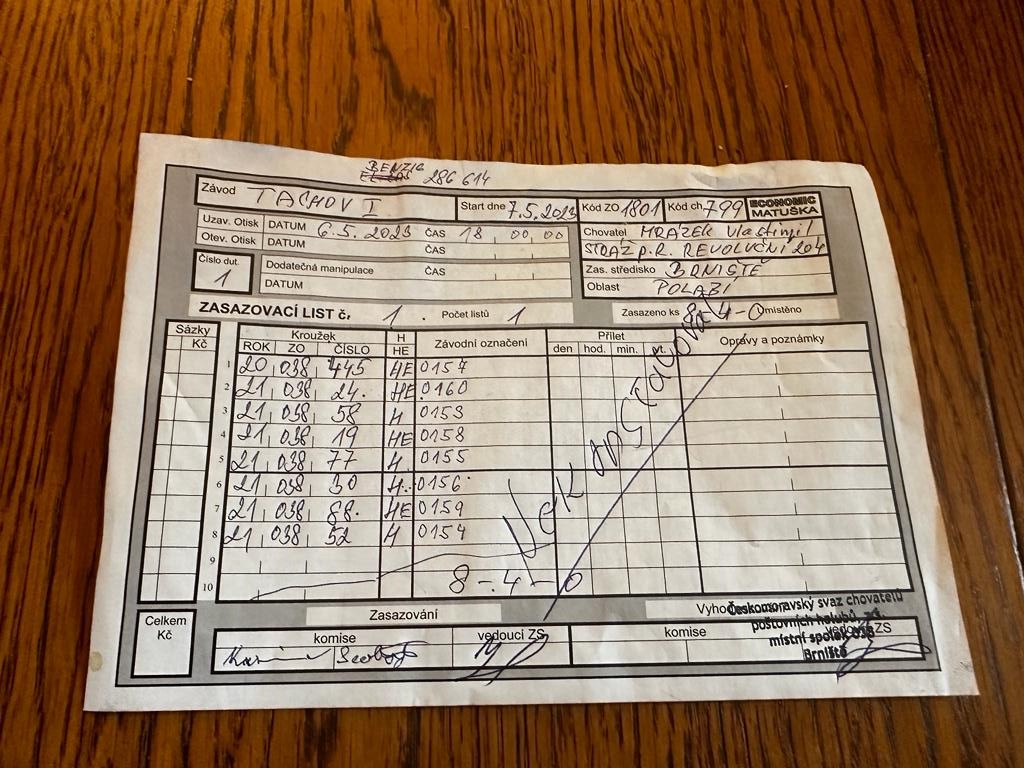 BENZIG 286 614
Závod TACHOV I Start dne 7.5.2023 Kód ZO 1801 Kód ch 799 ECONOMIC MATUŠKA
Uzav. Otisk DATUM 6.5.2023 ČAS 18,00,00
Chovatel MRÁZEK Vlastimil
Otev. Otisk DATUM ČAS
STRÁŽ p.R. REVOLUČNÍ 204
Číslo dut. 1 Dodatečná manipulace ČAS
Zas. středisko BRNIŠTĚ
DATUM
Oblast POLABÍ
ZASAZOVACÍ LIST č. 1. Počet listů 1 Zasazeno ks 8-4-0 místěno
Sázky Kroužek H Závodní označení Přílet Opravy a poznámky
Kč ROK ZO ČÍSLO HE den hod. min. vt.
1 20 038 445 HE 0157
2 21 038 24. HE 0160
3 21 038 58 H 0153
4 21 038 19 HE 0158
5 21 038 77 H. 0155
6 21 038 30 H. 0156
7 21 038 88. HE 0159
8 21 038 52 H 0154
9
10 8-4-0
Nekonstatoval
Celkem Kč Zasazování
komise vedoucí ZS komise vedoucí ZS
Českomoravský svaz chovatelů
poštovních holubů
místní spolek 038
Brniště